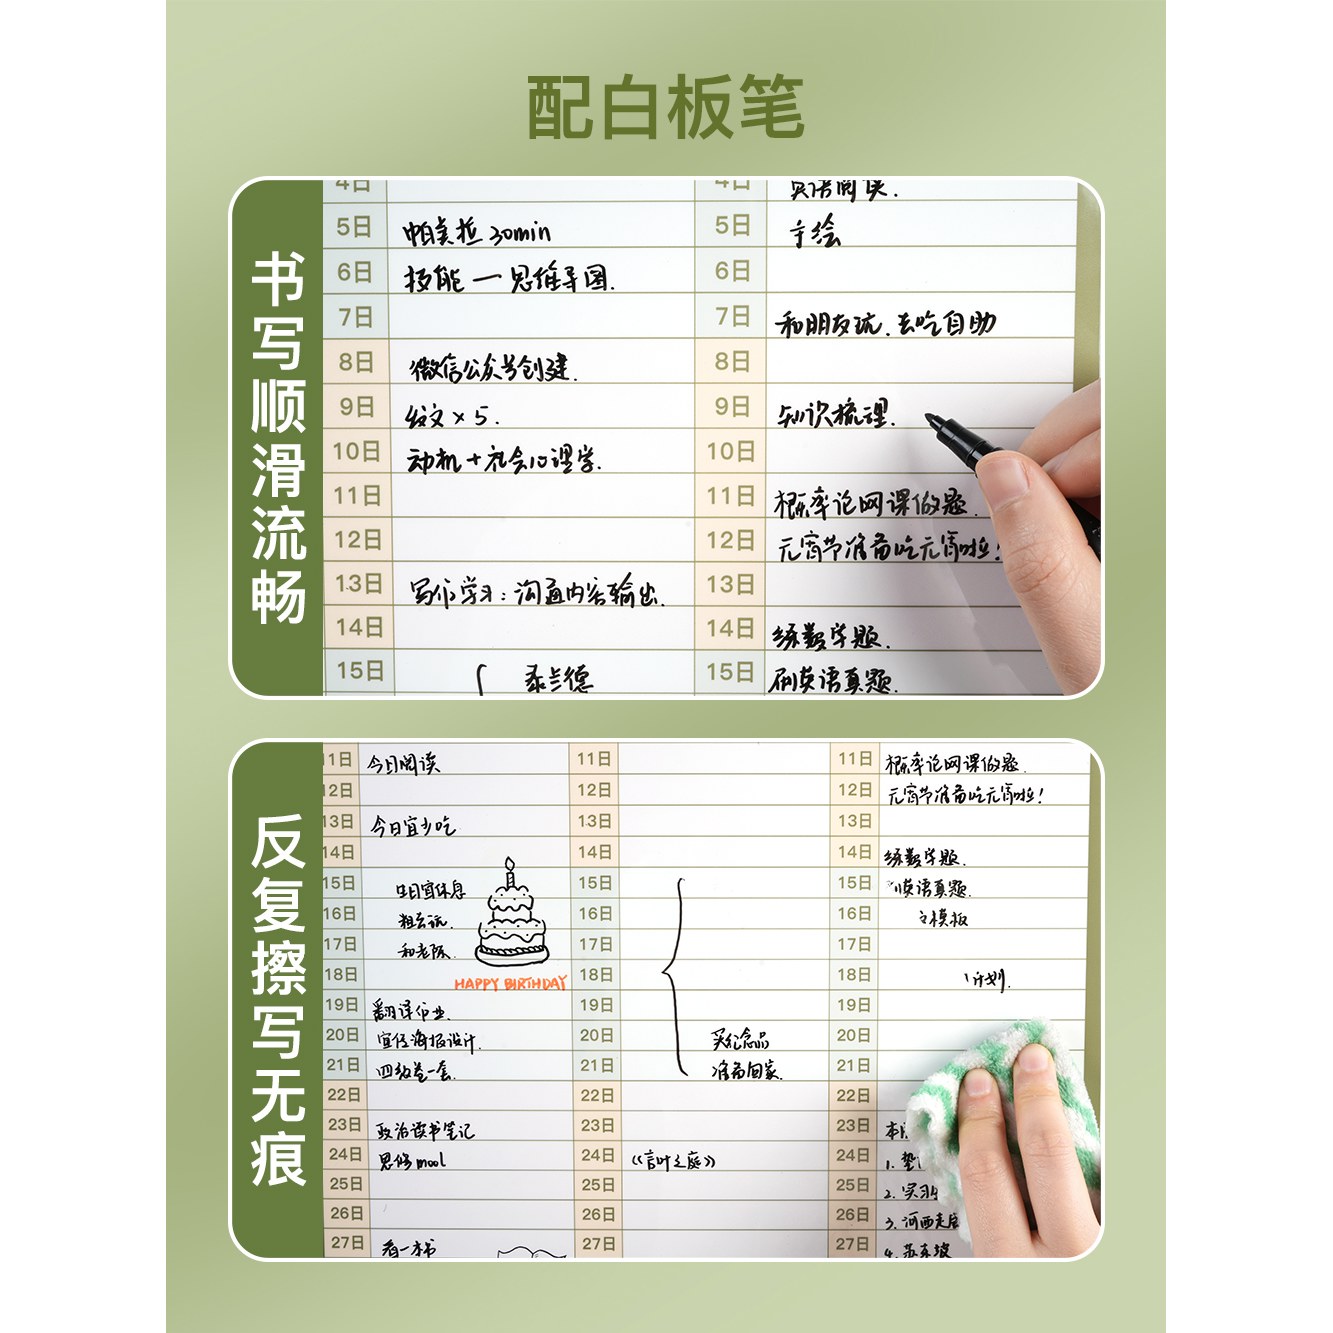 配白板笔
书写顺滑流畅
4日
4日 英语阅读.
5日 帕美拉 30min
5日 手绘
6日 技能一思维导图.
6日
7日
7日 和朋友玩.去吃自助
8日 微信公众号创建.
8日
9日 发文×5.
9日 知识梳理.
10日 动机+社会心理学.
10日
11日
11日 概率论网课做题.
12日
12日 元宵节准备吃元宵啦!
13日 写作学习:沟通内容输出.
13日
14日
14日 练数学题.
15日
15日 刷英语真题.
反复擦写无痕
11日 今日阅读
11日
11日 概率论网课做题.
12日
12日
12日 元宵节准备吃元宵啦!
13日 今日宜少吃
13日
13日
14日
14日
14日 练数学题.
15日 生日宜休息
15日
15日 英语真题.
16日
16日
16日 模板
17日 和老陈.
17日
17日
18日 HAPPY BIRTHDAY
18日
18日 计划.
19日 翻译作业.
19日
19日
20日 宣传海报设计.
20日 买纪念品
20日
21日 四级卷一套.
21日 准备回家.
21日
22日
22日
22日
23日 政治读书笔记
23日
23日 本
24日 思修mooc
24日 《言叶之庭》
24日 1.
25日
25日
25日 2.实习
26日
26日
26日 3.河西走
27日 看一本书
27日
27日 4.苏东坡